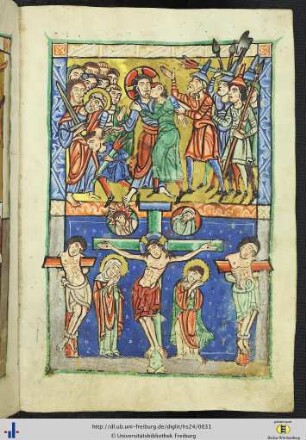 http://dl.ub.uni-freiburg.de/diglit/hs24/0031
© Universitätsbibliothek Freiburg